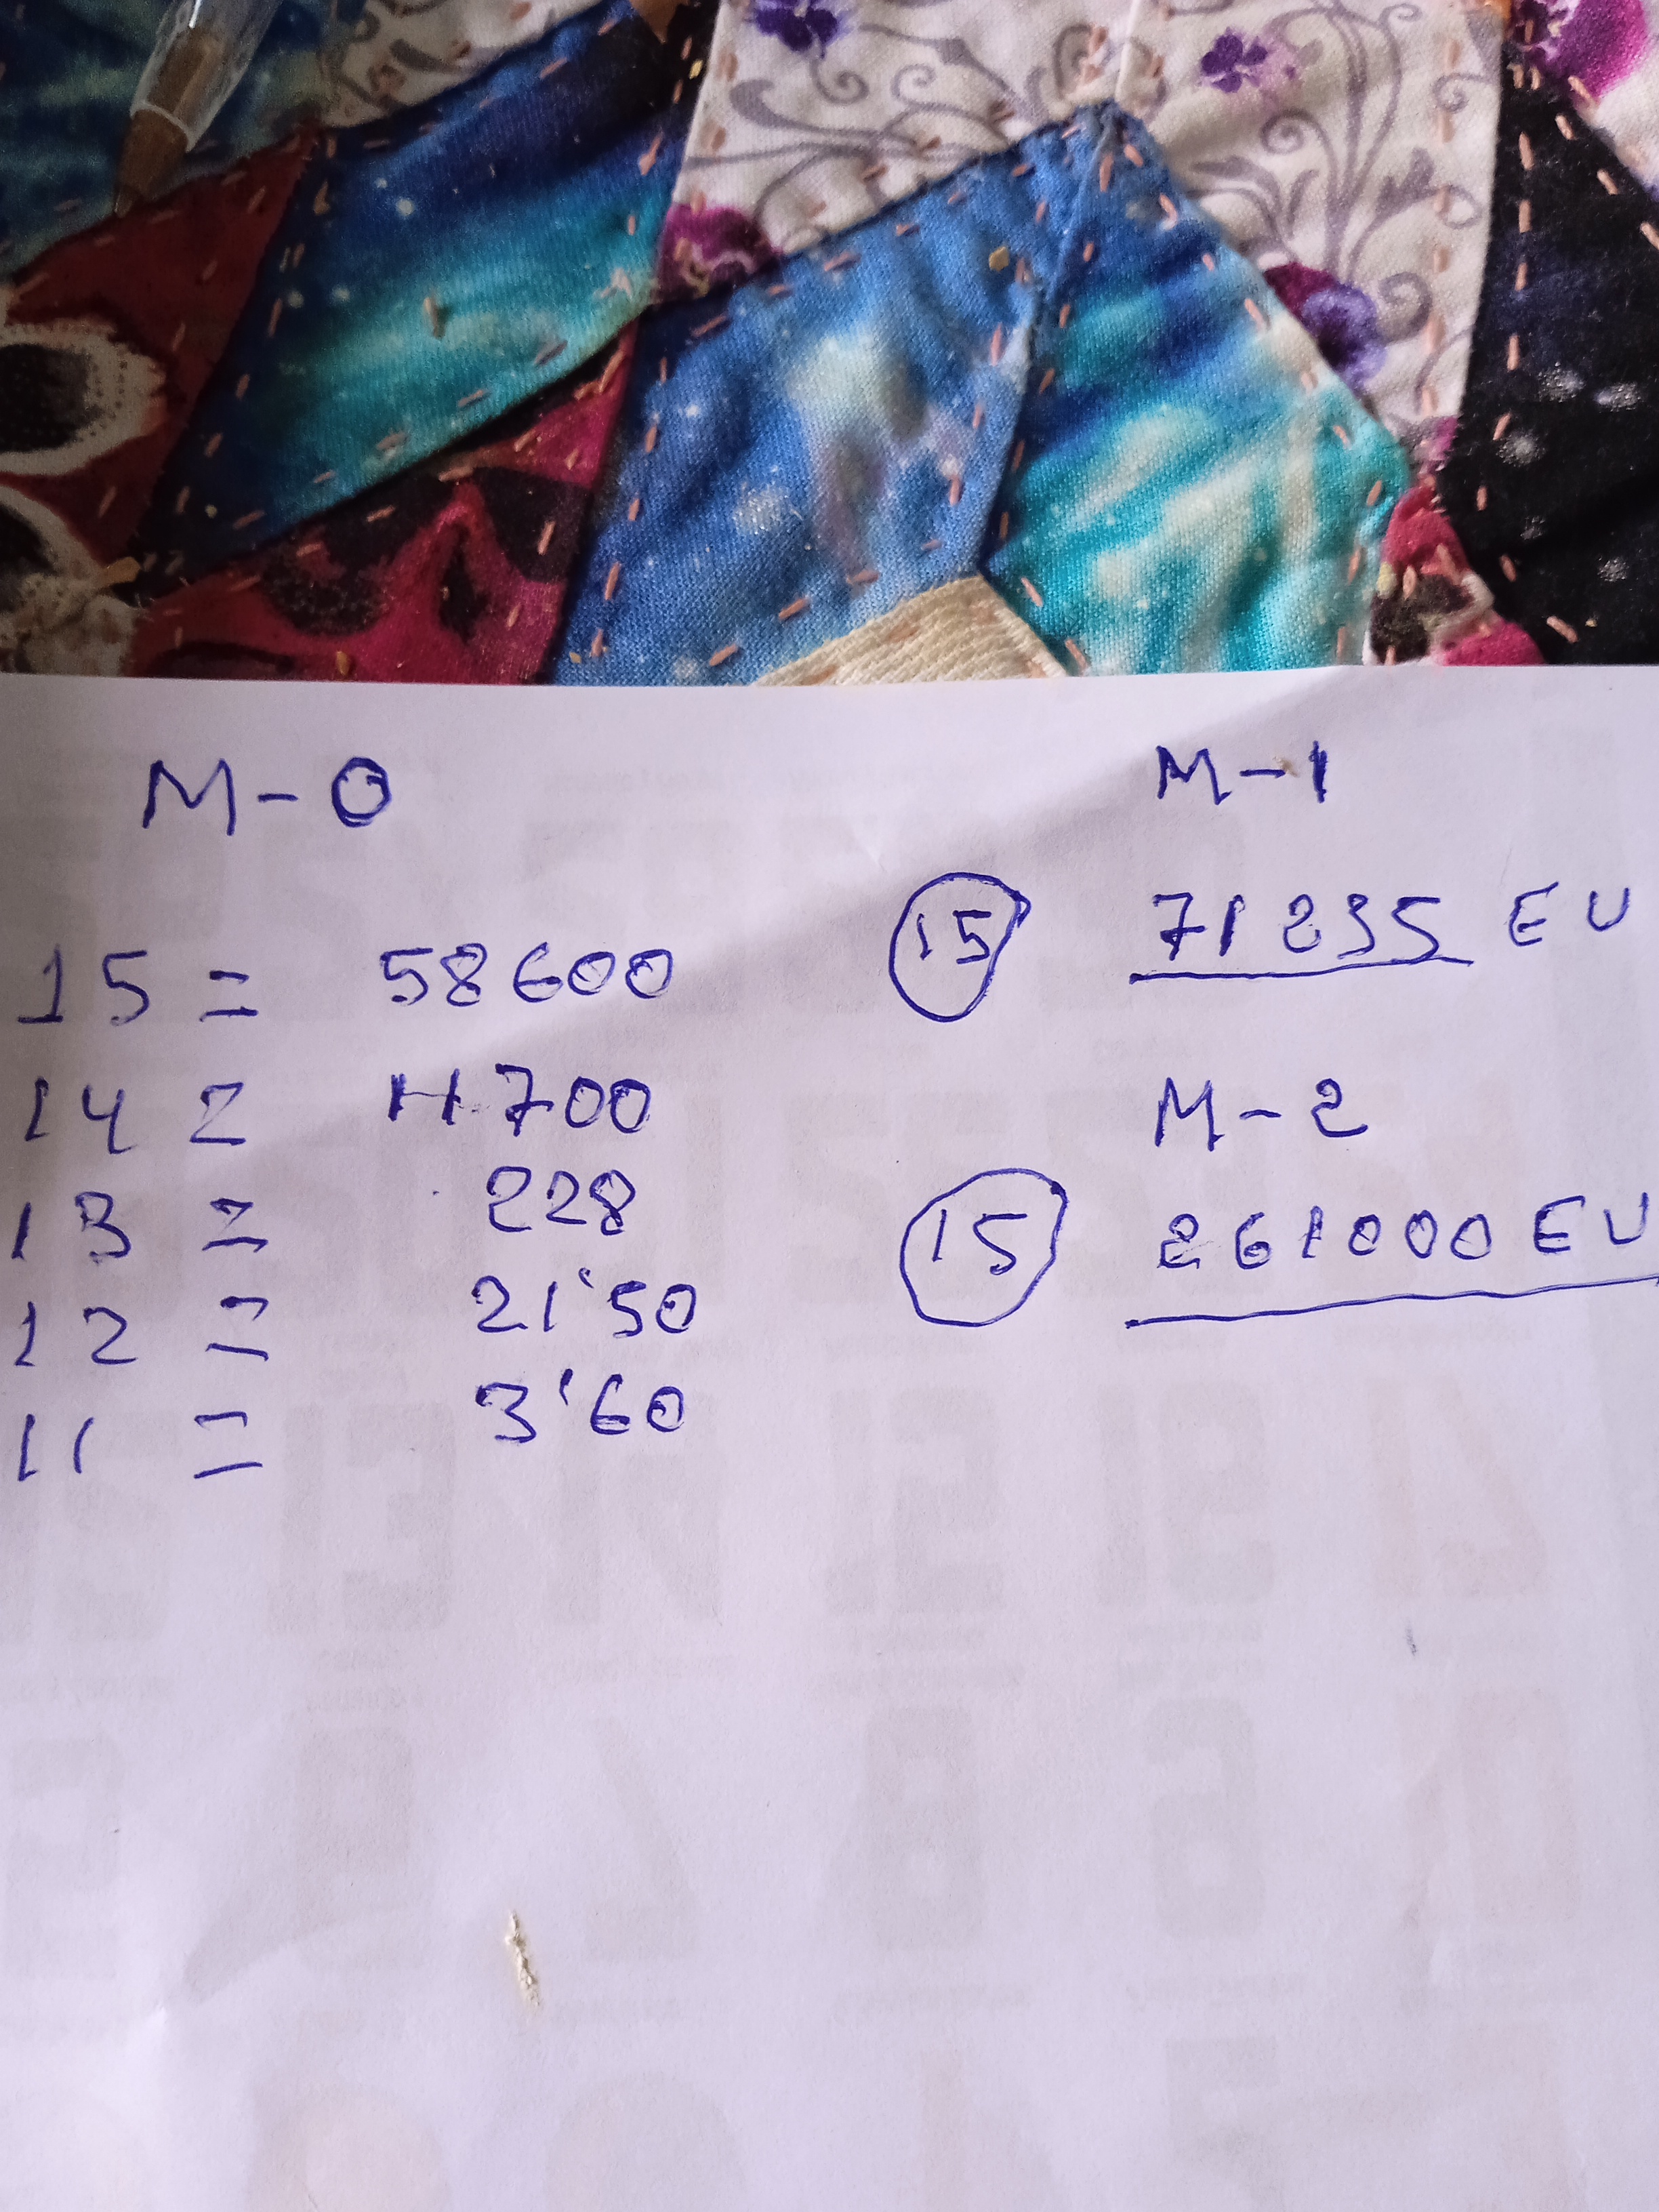 M-0
15 = 58600
14 = 11.700
13 = 228
12 = 21'50
11 = 3'60
M-1
15 71235 EU
M-2
15 261000 EU